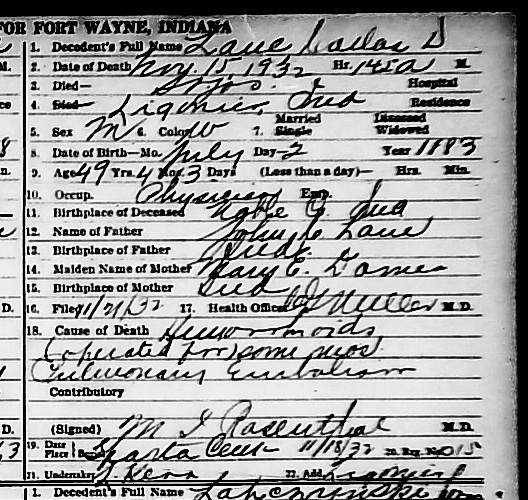 FOR FORT WAYNE, INDIANA
1. Decedent's Full Name Lane Dallas D
2. Date of Death Nov. 15, 1932 Hr. 145 A M.
3. Died— Hospital
4. Died— Ligonier, Ind Residence
5. Sex M 6. Color W 7. Married Single Diseased Widowed
8. Date of Birth—Mo. July Day—2 Year 1883
9. Age 49 Yrs. 4 Mos. 3 Days (Less than a day)— Hrs. Min.
10. Occup. Physician Emp.
11. Birthplace of Deceased Noble C. Ind
12. Name of Father John C Lane
13. Birthplace of Father Ind.
14. Maiden Name of Mother Mary E.
15. Birthplace of Mother Ind
16. Filed 11/21/32 17. Health Officer M.D.
18. Cause of Death Hemorrhoids
(operated for) some mos
Pulmonary Embolism
Contributory
(Signed) M I Rosenthal M.D.
19. Date Place Burial Sparta Cem 11/18/32 20. Reg. No. 015
21. Undertaker Kern 22. Add. Ligonier
1. Decedent's Full Name